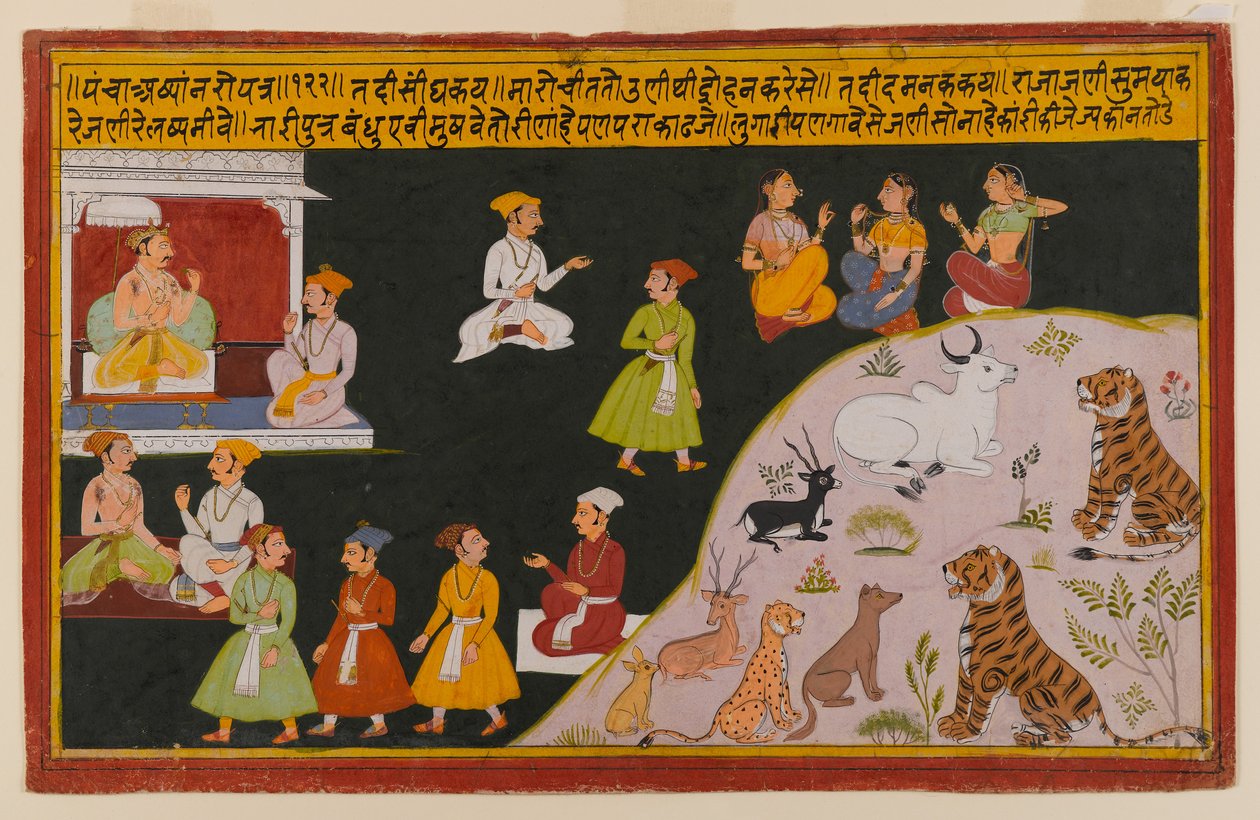 ॥पंचाअष्यांन रो पत्र॥१२२॥ तदी सींघ कय॥ मारो चीत तो उणी थी द्रोह न करे से॥ तदी दमनक कय॥ राजा जणी सु मया क
रे जणी रे लष्यमी वै॥ नारी पुत्र बंधु ए वी मुष वे तो रीणां हे पण परा काढजै॥ लुगारी पण गावै से जणी सोना हे कांरी कीजे ज्य कांन तोडे